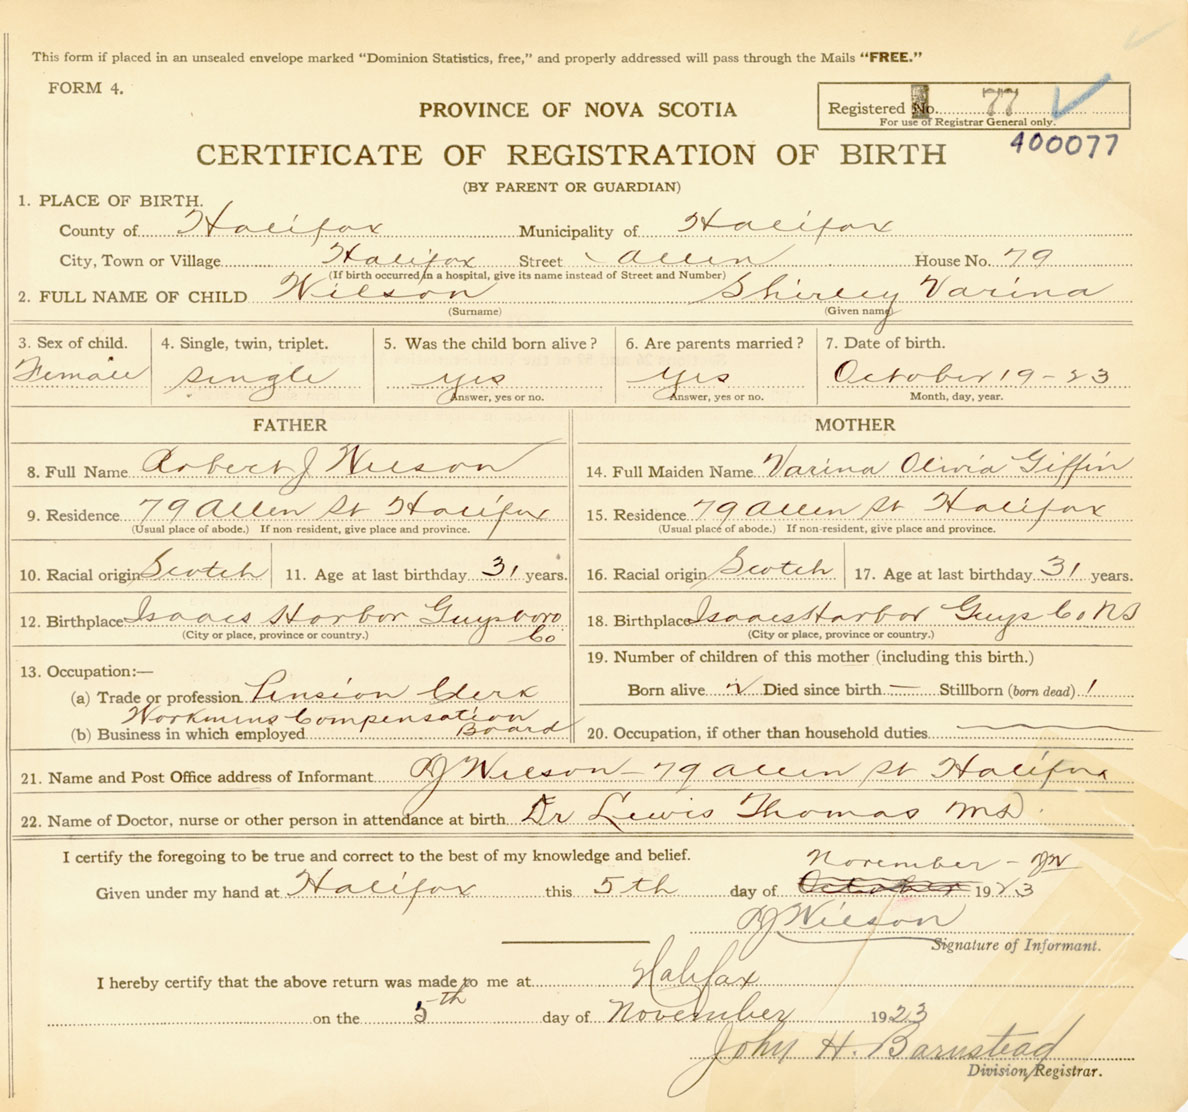 This form if placed in an unsealed envelope marked "Dominion Statistics, free," and properly addressed will pass through the Mails "FREE."
FORM 4.
Registered No. 77
For use of Registrar General only.
PROVINCE OF NOVA SCOTIA
400077
CERTIFICATE OF REGISTRATION OF BIRTH
(BY PARENT OR GUARDIAN)
1. PLACE OF BIRTH.
County of Halifax Municipality of Halifax
City, Town or Village Halifax Street Allen House No. 79
(If birth occurred in a hospital, give its name instead of Street and Number)
2. FULL NAME OF CHILD Wilson Shirley Varina
(Surname) (Given name)
3. Sex of child. 4. Single, twin, triplet. 5. Was the child born alive? 6. Are parents married? 7. Date of birth.
Female single yes yes October 19-23
Answer, yes or no. Answer, yes or no. Month, day, year.
FATHER MOTHER
8. Full Name Robert J Wilson 14. Full Maiden Name Varina Olivia Giffin
9. Residence 79 Allen St Halifax 15. Residence 79 Allen St Halifax
(Usual place of abode.) If non resident, give place and province. (Usual place of abode.) If non-resident, give place and province.
10. Racial origin Scotch 11. Age at last birthday 31 years. 16. Racial origin Scotch 17. Age at last birthday 31 years.
12. Birthplace Isaacs Harbor Guysboro Co 18. Birthplace Isaacs Harbor Guys Co NS
(City or place, province or country.) (City or place, province or country.)
13. Occupation:— 19. Number of children of this mother (including this birth.)
(a) Trade or profession Pension Clerk Born alive 2 Died since birth — Stillborn (born dead) 1
Workmens Compensation
(b) Business in which employed Board 20. Occupation, if other than household duties
21. Name and Post Office address of Informant RJ Wilson - 79 Allen St Halifax
22. Name of Doctor, nurse or other person in attendance at birth Dr Lewis Thomas MD.
I certify the foregoing to be true and correct to the best of my knowledge and belief. November - RJW
Given under my hand at Halifax this 5th day of October 1923
RJ Wilson
Signature of Informant.
I hereby certify that the above return was made to me at Halifax
on the 5th day of November 1923
John H. Barnstead
Division Registrar.